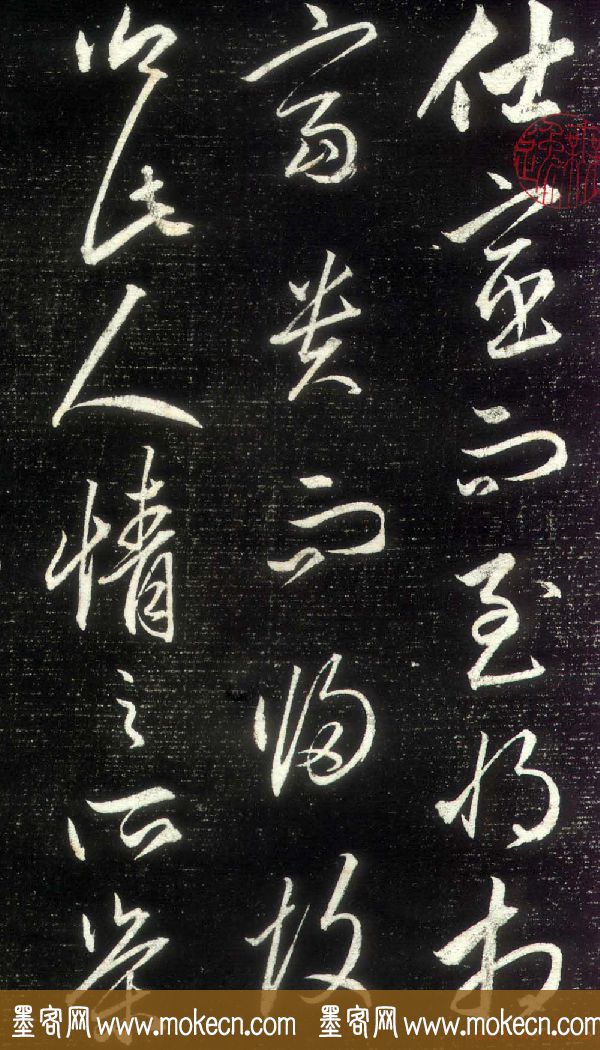 仕宦而至將相
富貴而歸故
鄉此人情之所榮
墨客网 www.mokecn.com 墨客网 www.mokecn.com